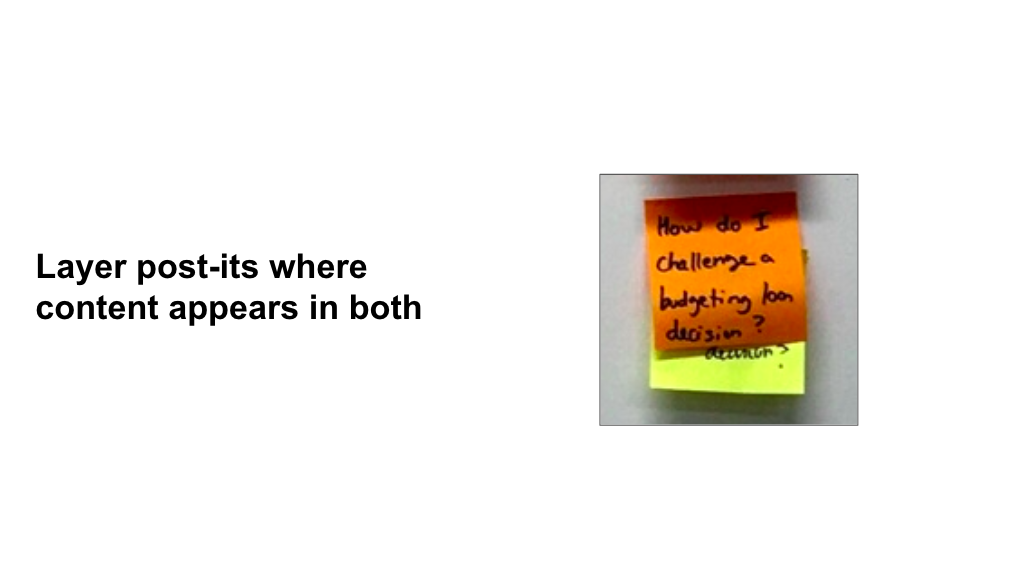 Layer post-its where
content appears in both
How do I
challenge a
budgeting loan
decision?
decision?